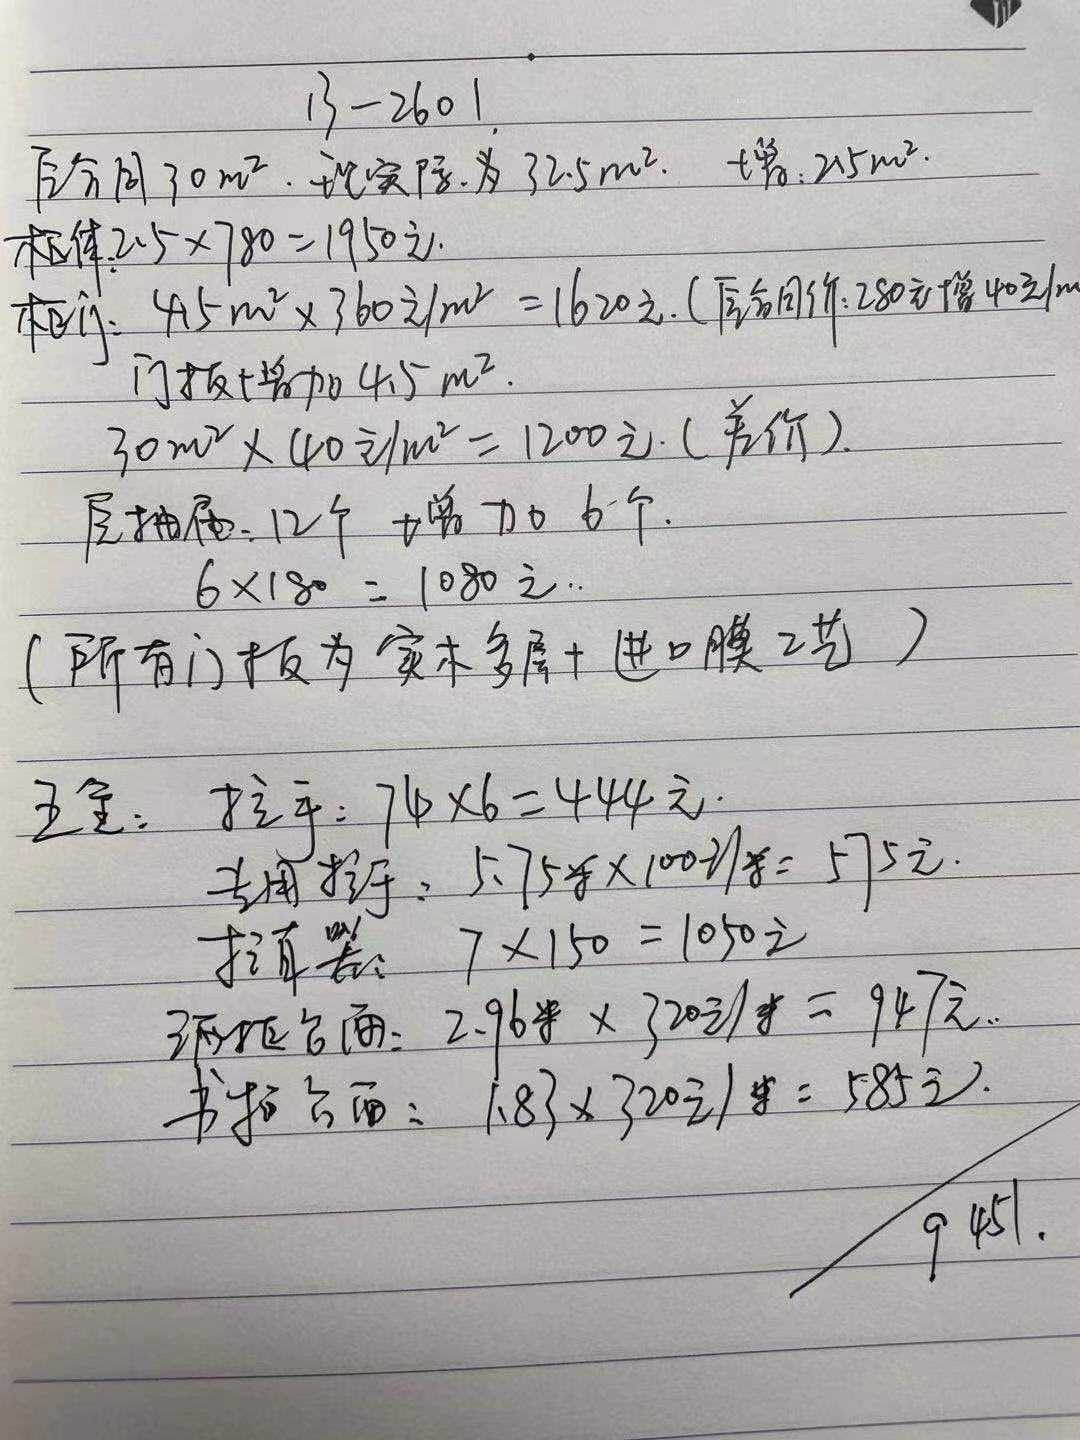 13-2601.
原合同30m². 现实际为32.5m². 增:2.5m².
柜体:2.5×780=1950元.
柜门: 4.5m²×360元/m²=1620元.(原合同价:280元增40元/m
门板增加4.5m².
30m²×40元/m²=1200元.(差价).
原抽屉:12个 增加6个.
6×180=1080元..
(所有门板为实木多层+进口膜工艺)
五金: 拉手:74×6=444元.
专用拉手: 5.75米×100元/米=575元.
拉直器: 7×150=1050元
台面: 2.96米×320元/米=947元..
书柜台面: 1.83×320元/米=585元.
9451.